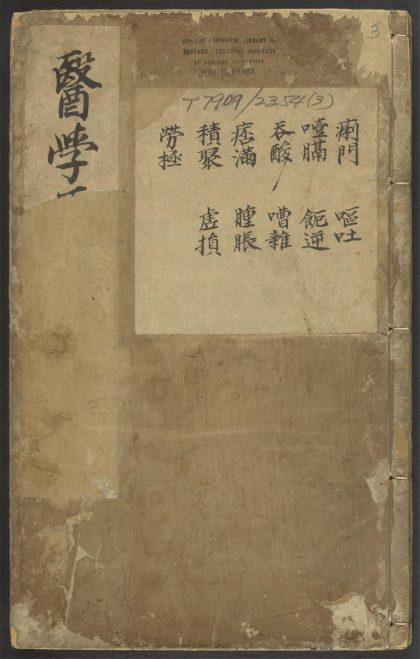 3
JAPANESE LIBRARY O
HARVARD-YENCHING INSTITUTE
AT HARVARD UNIVERSITY
JUN
T 7909/2354(3)
痢門 嘔吐
噎膈 逆
吞酸 嘈雜
痞滿 腫脹
積聚 虛損
勞極
醫學